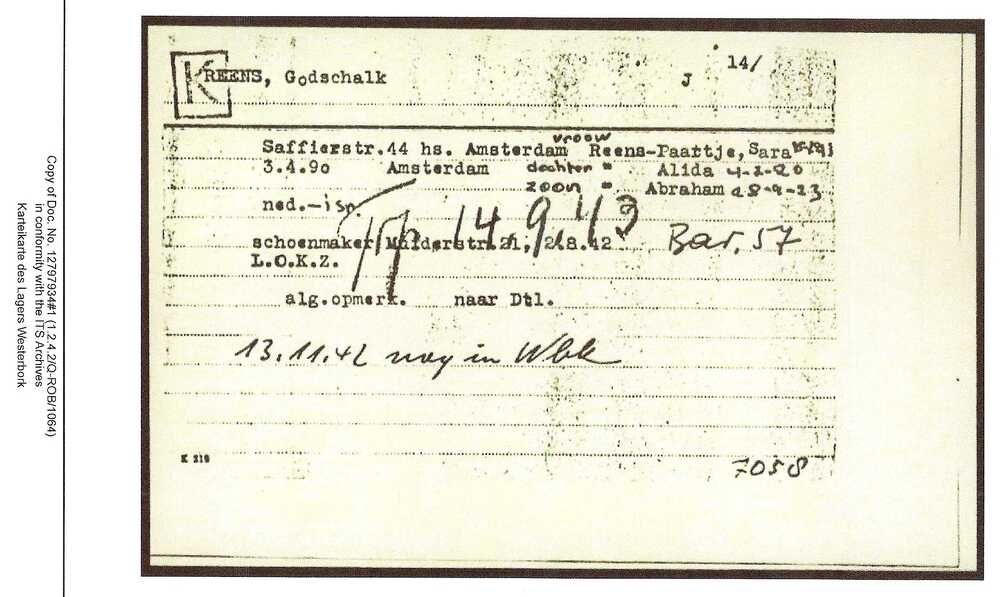 Copy of Doc. No. 12797934#1 (1.2.4.2/Q-ROB/1064)
in conformity with the ITS Archives
Karteikarte des Lagers Westerbork
K
REENS, Godschalk
J
14/
vrouw
Saffierstr.44 hs. Amsterdam Reens-Paartje, Sara
3.4.90 Amsterdam dochter " Alida 4-2-20
zoon " Abraham 28-9-23
ned.-isr.
14.9.43
schoenmaker Mulderstr.21, 2.8.42 Bar. 57
L.O.K.Z.
alg.opmerk. naar Dtl.
13.11.42 nog in Wbk
K 210
7058